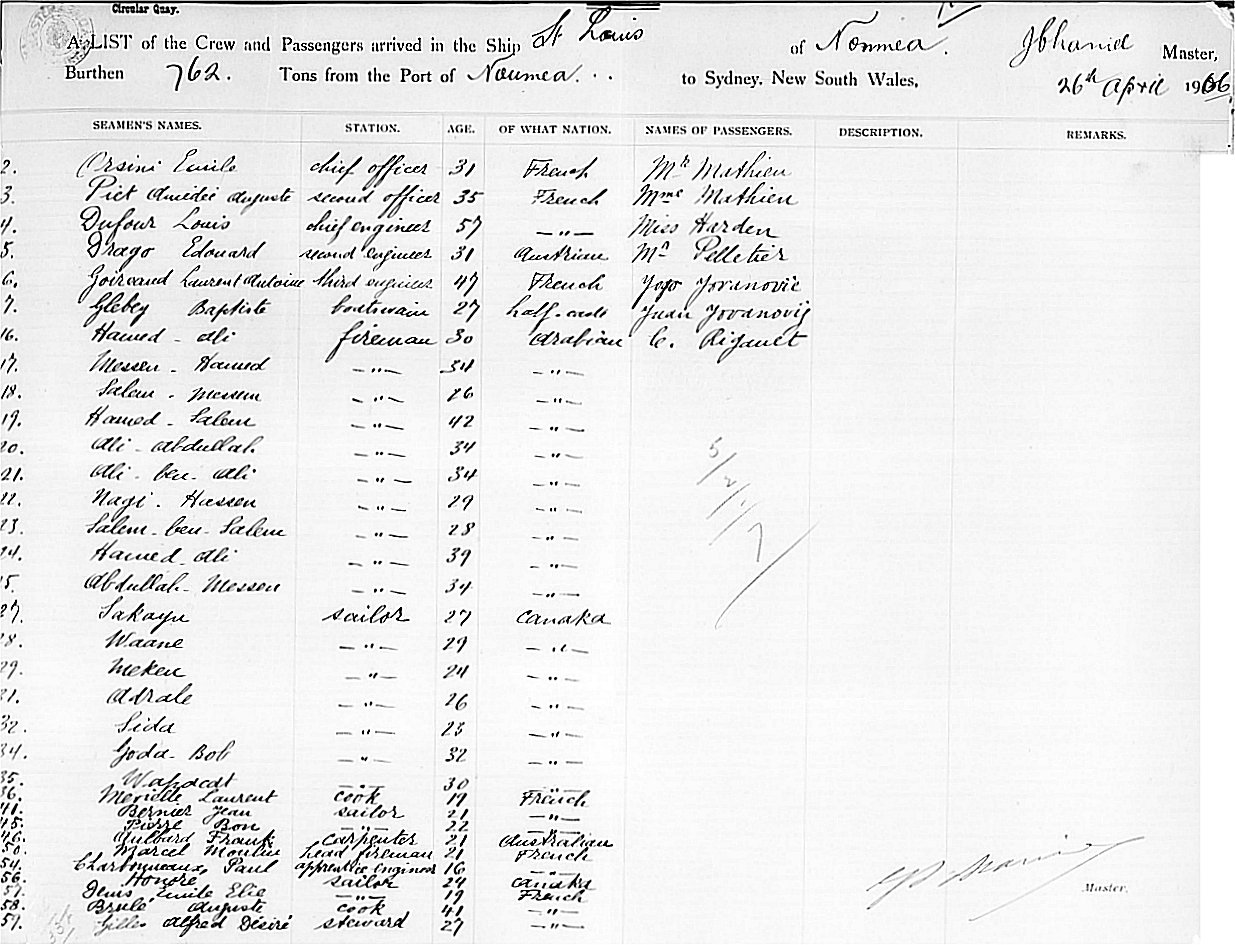 Circular Quay.
A LIST of the Crew and Passengers arrived in the Ship St Louis of Noumea. Master,
Burthen 762. Tons from the Port of Noumea... to Sydney, New South Wales, 26th April 1906
SEAMEN'S NAMES. STATION. AGE. OF WHAT NATION. NAMES OF PASSENGERS. DESCRIPTION. REMARKS.
2. Orsini Emile chief officer 31 French Mr Mathieu
3. Piet Amédée Auguste second officer 35 French Mme Mathieu
4. Dufour Louis chief engineer 57 —"— Miss Harden
5. Drago Edouard second engineer 31 Austrian Mr Pelletier
6. Laurent Antoine third engineer 47 French Yovo Jovanovic
7. Glebey Baptiste boatswain 27 half-cast Juan Jovanovij
16. Hamed - Ali fireman 30 Arabian C. Rigault
17. Messen - Hamed —"— 34 —"—
18. Salem - Messem —"— 26 —"—
19. Hamed - Salem —"— 42 —"—
20. Ali - Abdullah. —"— 34 —"—
21. Ali - ben - Ali —"— 34 —"—
22. Nagi - Hassen —"— 29 —"—
23. Salem - ben - Salem —"— 28 —"—
24. Hamed - Ali —"— 39 —"—
5. Abdullah - Messen —"— 34 —"—
27. Sakayu sailor 27 Canaka
28. Waane —"— 29 —"—
29. Meken —"— 24 —"—
31. Adrale —"— 26 —"—
32. Sida —"— 23 —"—
34. Godd - Bob —"— 32 —"—
35. Wapacat —"— 30 —"—
36. Merielle Laurent cook 19 French
41. Bernier Jean sailor 21 —"—
45. Pierre Bon —"— 22 —"—
46. Hulbard Frank carpenter 21 Australian
50. Marcel Moulin head fireman 21 French
54. Charbonneaux, Paul apprentice engineer 16 —"—
56. Honoré sailor 24 Canaka
57. Denis Emile Elie —"— 19 French
58. Brulé Auguste cook 41 —"—
59. Gilles Alfred Désiré steward 27 —"—
Master.